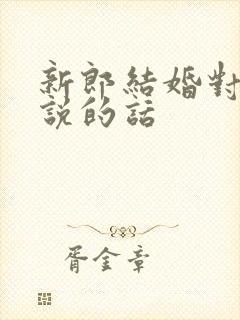 新郎結婚對
說的話
胥金章